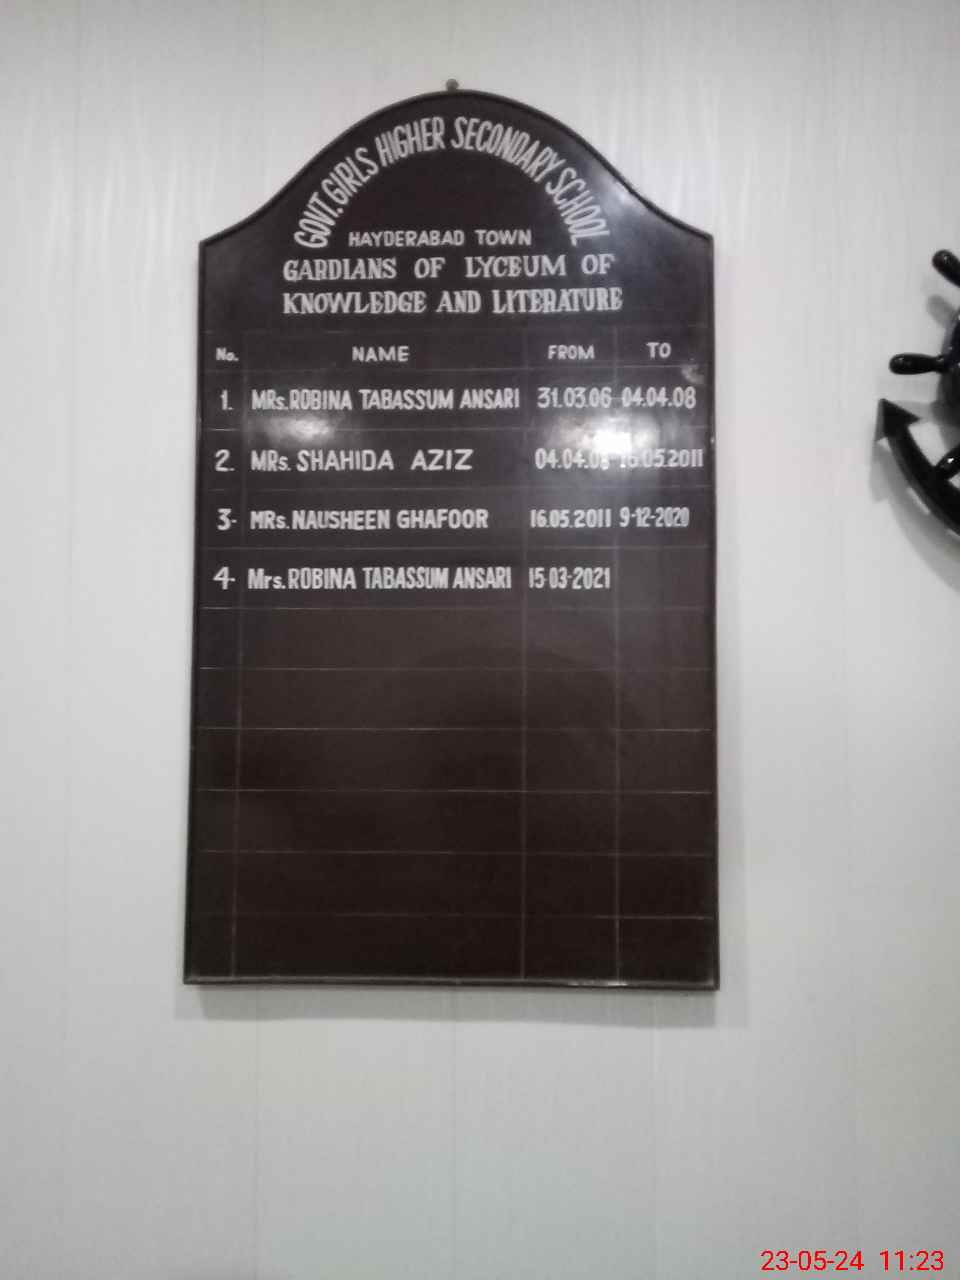 GOVT. GIRLS HIGHER SECONDARY SCHOOL
HAYDERABAD TOWN
GARDIANS OF LYCEUM OF
KNOWLEDGE AND LITERATURE
No. NAME FROM TO
1. MRs. ROBINA TABASSUM ANSARI 31.03.06 04.04.08
2. MRs. SHAHIDA AZIZ 04.04.08 16.05.2011
3- MRs. NAUSHEEN GHAFOOR 16.05.2011 9-12-2020
4- Mrs. ROBINA TABASSUM ANSARI 15-03-2021
23-05-24 11:23